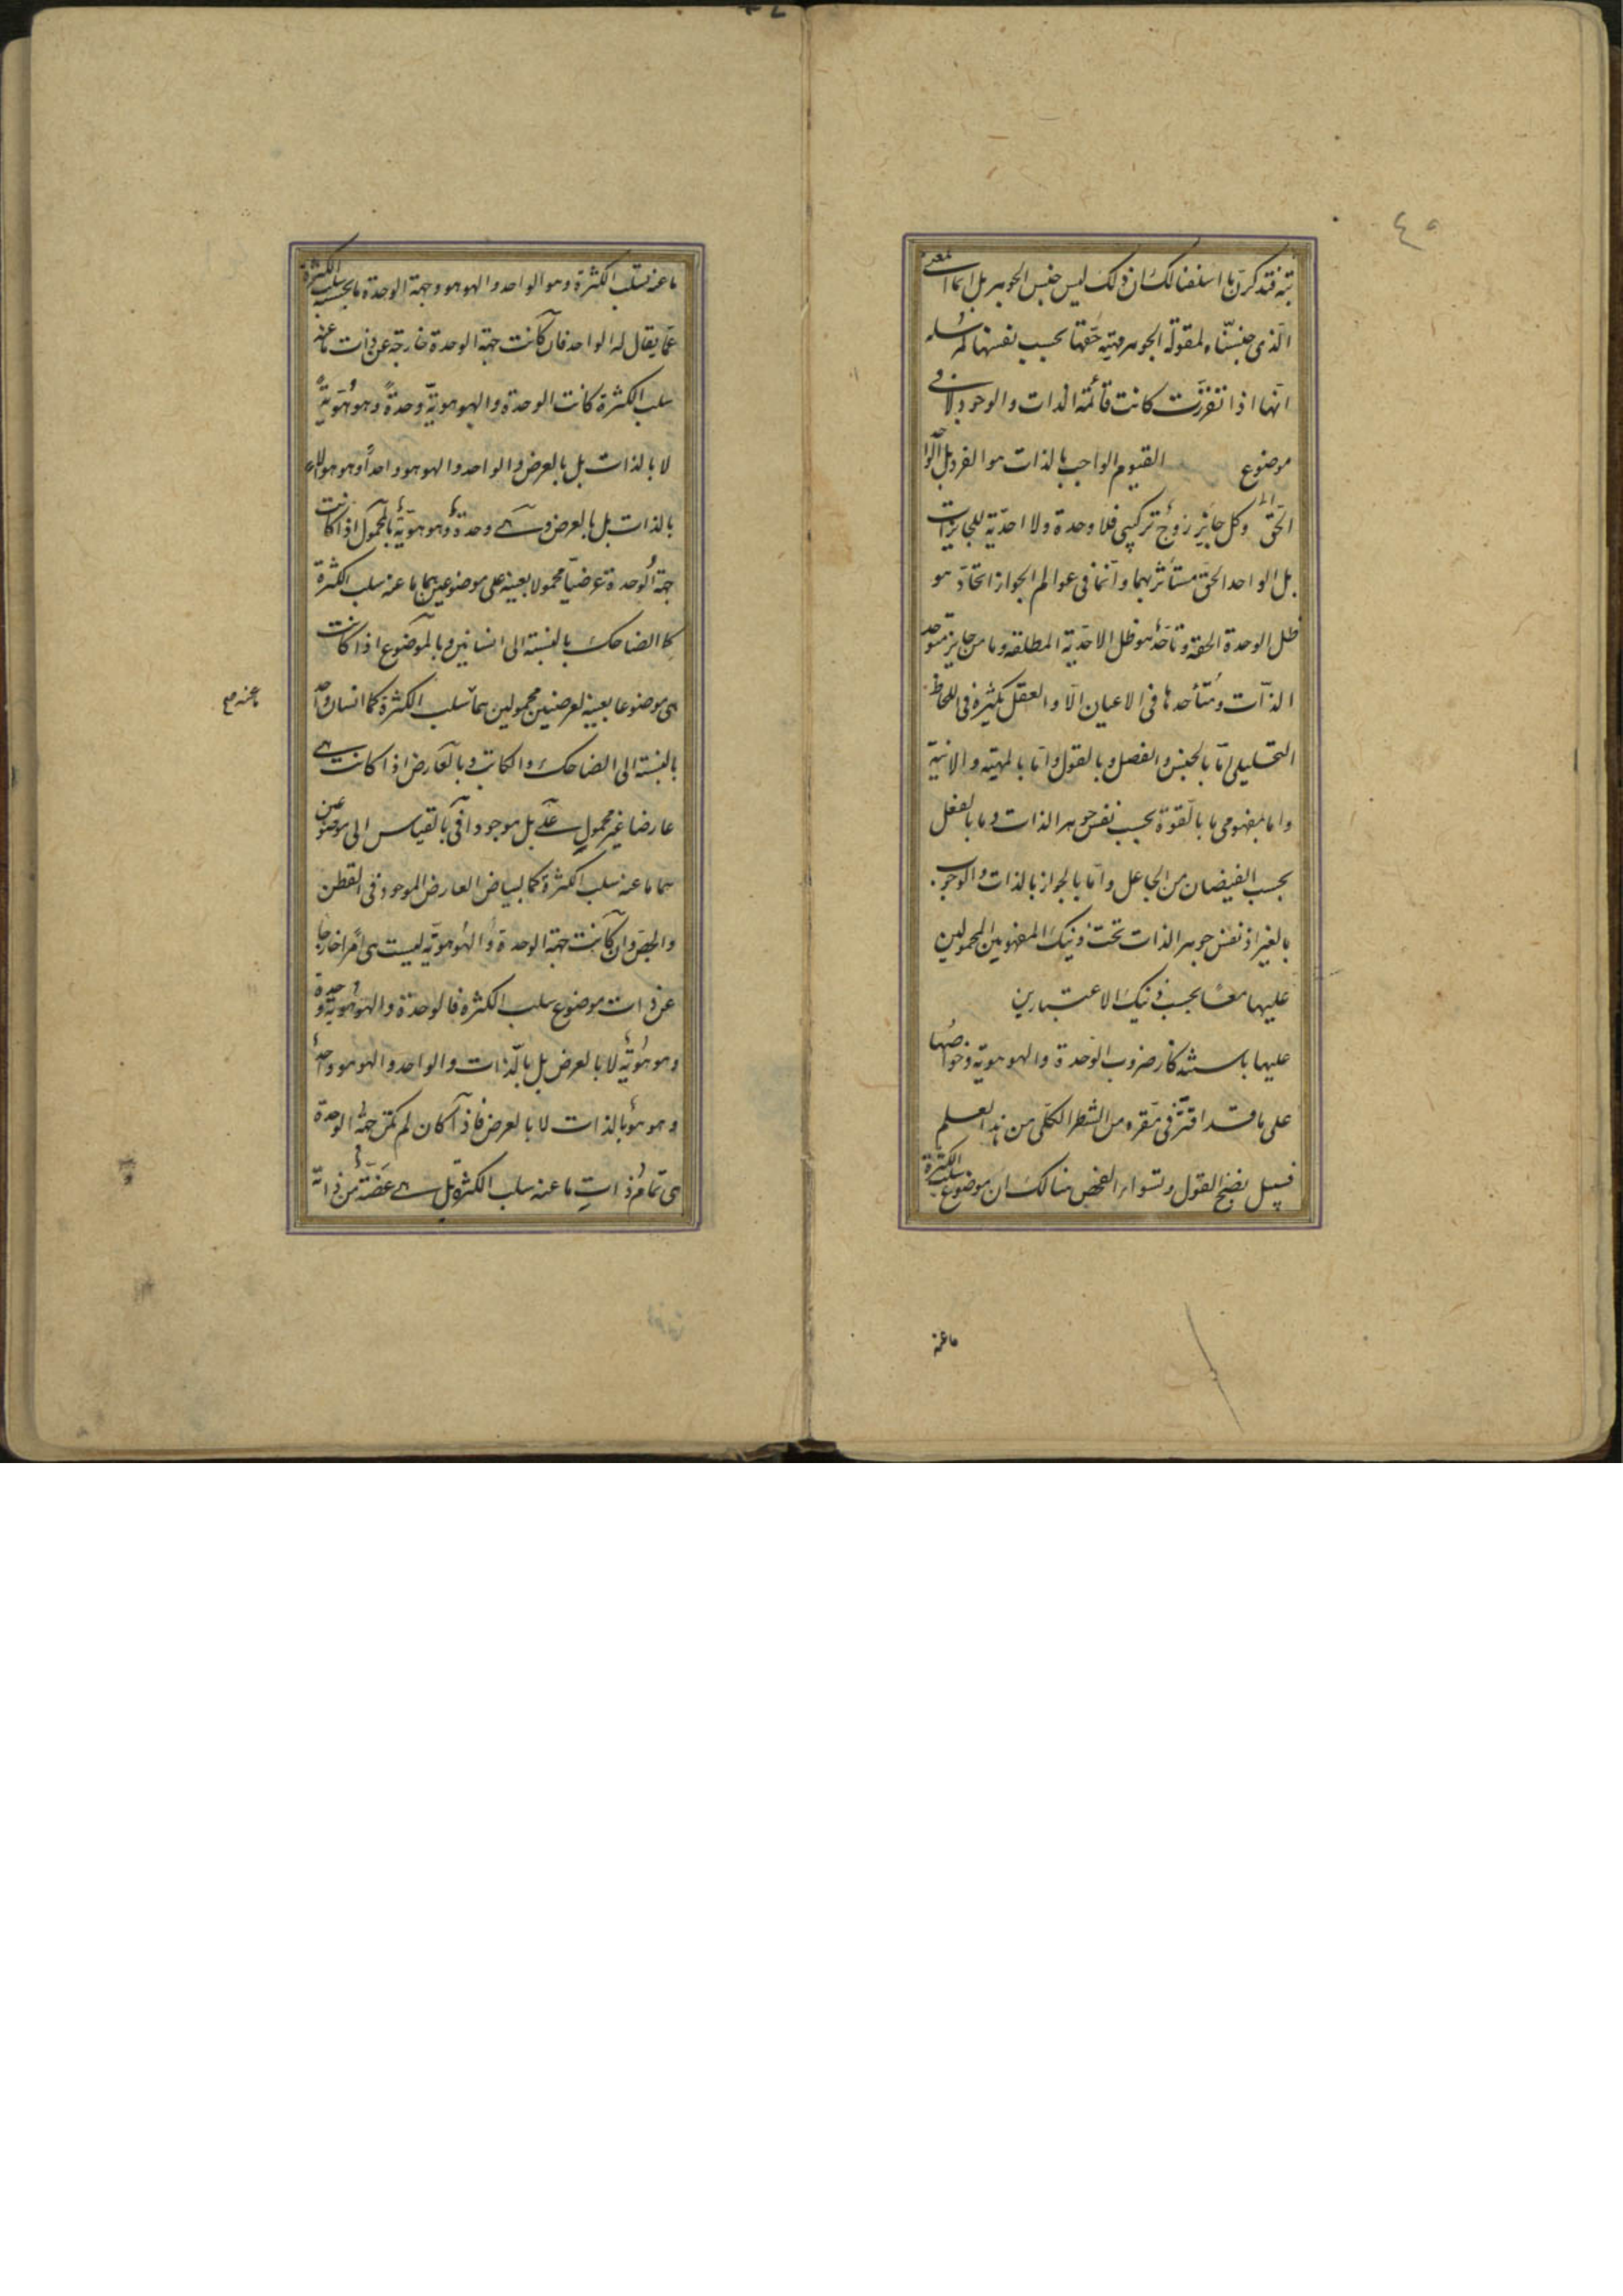 ٤٥
بته فتذكرن ما اسلفنا لك ان ذلك ليس جنس الجوهر بل انما المعنى
الذى جنسناه لمقولة الجوهر مهية حقها بحسب نفسها المرسله
انها اذا تقررت كانت قائمة الذات والوجود لا فى
موضوع القيوم الواجب بالذات هو الفرد بل الواحد
الحق وكل جايز زوج تركيبى فلا وحدة ولا احدية للجايزات
بل الواحد الحق مستأثر بهما وانما فى عوالم الجواز اتحاد هو
ظل الوحدة الحقة وتأحد هو ظل الاحدية المطلقه وما من جايز متوحد
الذات ومتأحدها فى الاعيان الا والعقل يكثره فى اللحاظ
التحليلى اما بالجنس والفصل وبالقول واما بالمهية والانية
واما بمفهومى ما بالقوة بحسب نفس جوهر الذات وما بالفعل
بحسب الفيضان من الجاعل واما بالجواز بالذات والوجوب
بالغير اذ نفس جوهر الذات تحت ذينك المفهومين المحمولين
عليها معا بحسب ذينك الاعتبارين
عليها باستذكار ضروب الوحدة والهوهوية وخواصها
على ما قد اقتر فى مقره من الشطر الكلى من هذا العلم
فسبيل نضج القول وتسواء الفحص هنالك ان موضوع سلب الكثرة
ما عنه
ما عنه سلب الكثرة وهو الواحد والهوهو وجهة الوحدة ما بحسبه سلب الكثرة
عما يقال له الواحد فان كانت جهة الوحدة خارجة عن ذات ما عنه
سلب الكثرة كانت الوحدة والهوهوية وحدة وهوهوية
لا بالذات بل بالعرض والواحد والهوهو واحدا وهوهو لا
بالذات بل بالعرض وهى وحدة وهوهوية بالمحمول اذا كانت
جهة الوحدة عرضيا محمولا بعينه على موضوعين هما ما عنه سلب الكثرة
كالضاحك بالنسبة الى انسانين وبالموضوع اذا كانت
هى موضوعا بعينه لعرضيين محمولين هما سلب الكثرة كانسان واحد
ما عنه صح
بالنسبة الى الضاحك والكاتب وبالعارض اذا كانت هى
عارضا غير محمول على بل موجودا فى بالقياس الى موضوعين
هما ما عنه سلب الكثرة كالبياض العارض الموجود فى القطن
والجص وان كانت جهة الوحدة والهوهوية ليست هى امرا خارجا
عن ذات موضوع سلب الكثرة فالوحدة والهوهوية وحدة
وهوهوية لا بالعرض بل بالذات والواحد والهوهو واحد
وهوهو بالذات لا بالعرض فاذا كان لم تكن جهة الوحدة
هى تمام ذات ما عنه سلب الكثرة بل هى بعضة من ذاته